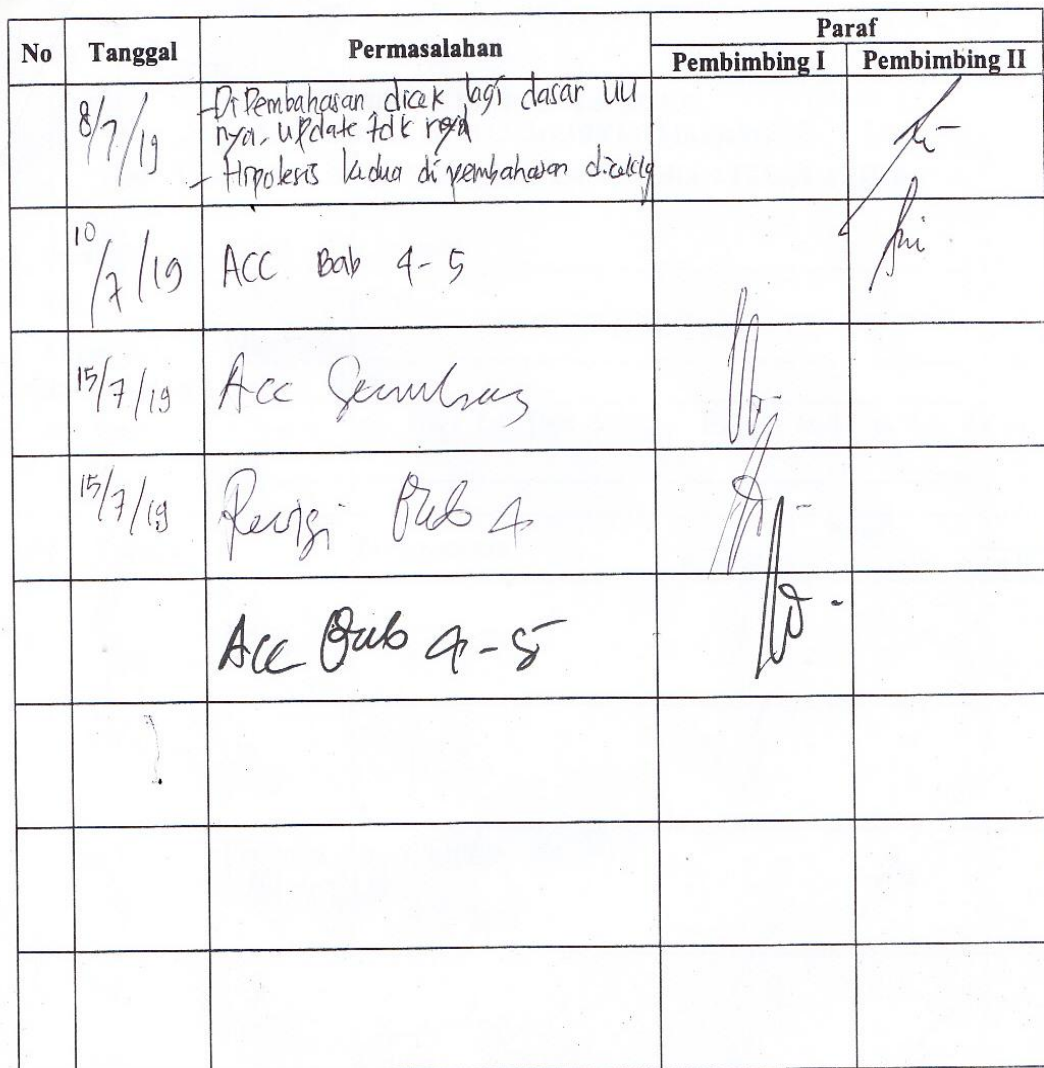 No Tanggal Permasalahan Paraf
Pembimbing I Pembimbing II
8/7/19
- Di Pembahasan dicek lagi dasar UU
nya, update tdk
- Hipotesis kedua di pembahasan dicek lg
10/7/19 ACC Bab 4-5
15/7/19 Acc
15/7/19 Revisi Bab 4
Acc Bab 4-5